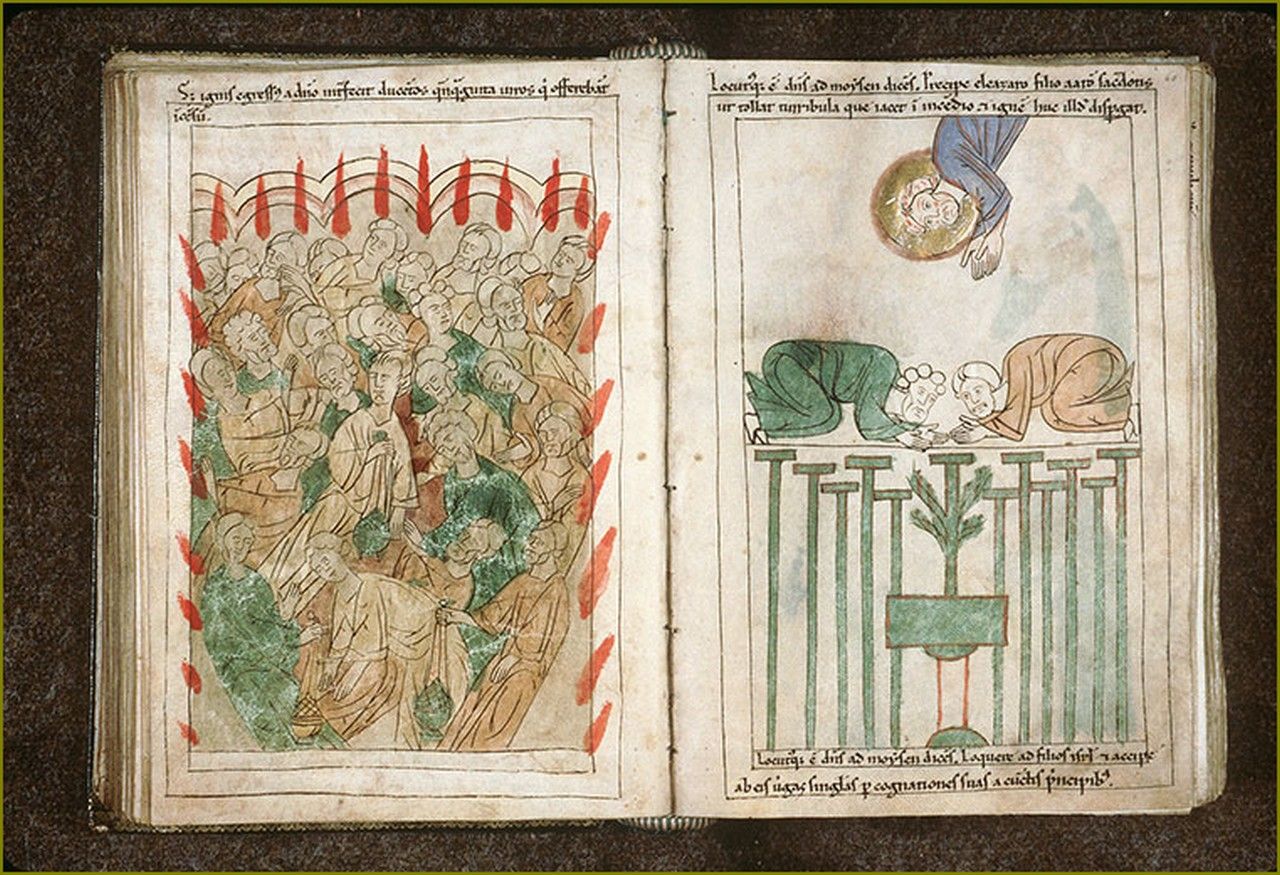 Sʒ ignis egressꝰ a dño int̃fecit ducentos q̇nq̇ginta uiros q̇ offerebãt
ĩcẽsũ.
Locutꝰqʒ ẽ dñs ad moẏsen dicẽs. P̃recipe eleazaro filio aarõ sac̃dotis
ut tollat turribula que iacẽt ĩ incẽdio ⁊ ignẽ huc illucꝫ disp̃gat.
Locutꝰqʒ ẽ dñs ad moẏsen dicẽs. Loquere ad filios isrl̃ ⁊ accipe
ab eis ũgas singl̃as p̱ cognationes suas a cũctis p̃ncipibꝰ.